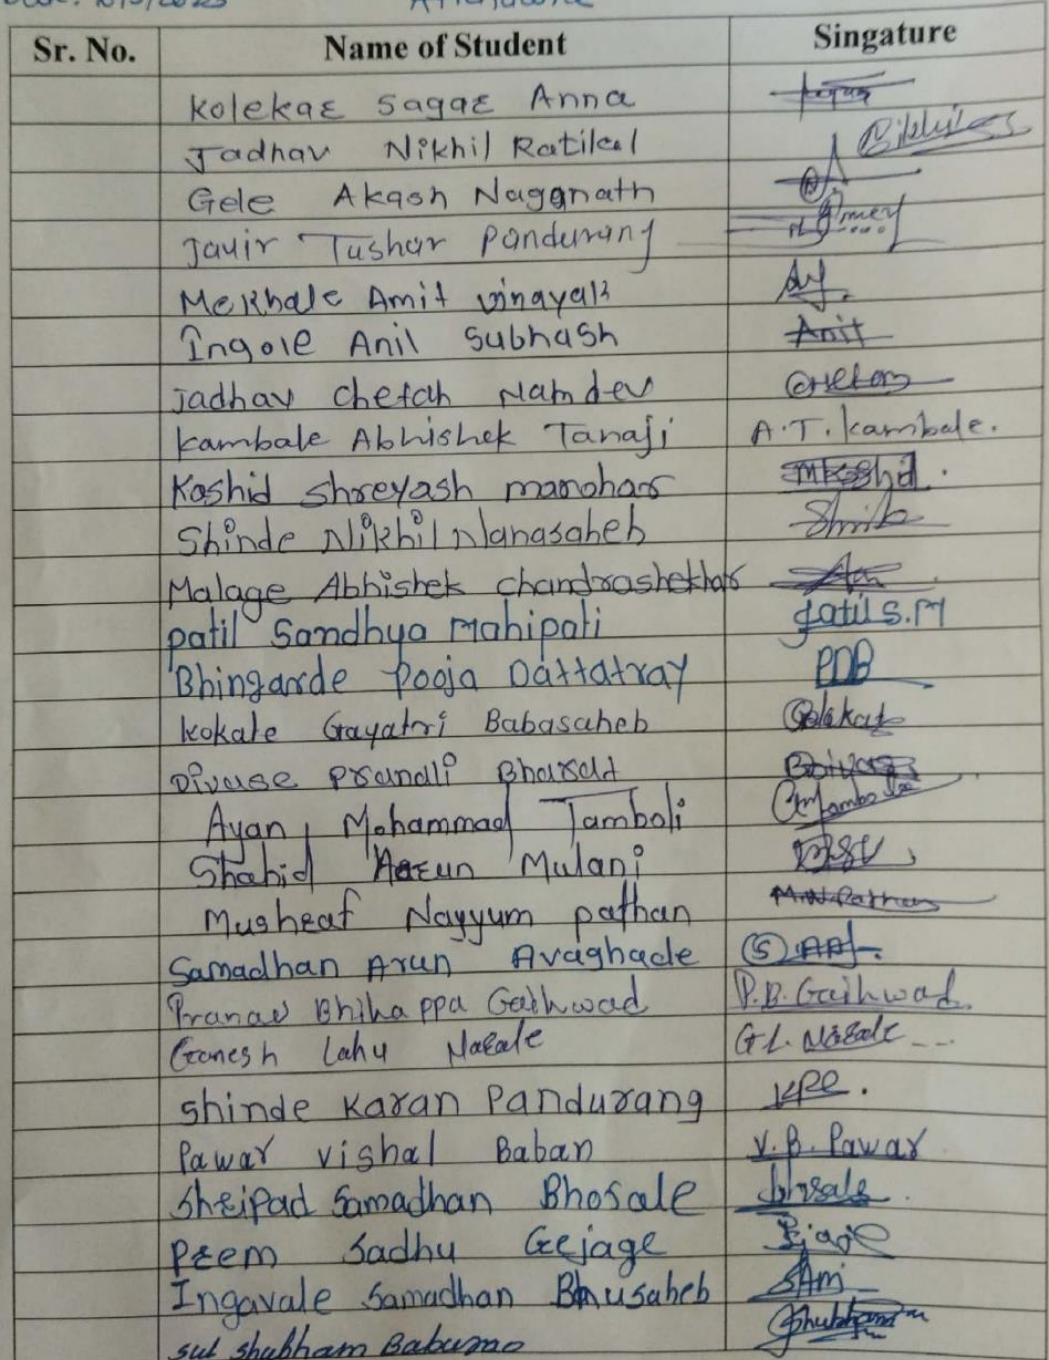 Attendance
Sr. No. Name of Student Singature
Kolekar Sagar Anna
Jadhav Nikhil Ratilal
Gele Akash Nagqnath
Javir Tushar Pandurang
Mekhale Amit Vinayak
Ingole Anil Subhash Anit
Jadhav Chetan Namdev Chetan
Kambale Abhishek Tanaji A.T. Kambale.
Kashid Shreyash manohar
Shinde Nikhil Nanasaheb
Malage Abhishek Chandrashekhar
Patil Sandhya Mahipati Patil S.M
Bhingarde Pooja Dattatray PDB
Kokale Gayatri Babasaheb
Divase Pranali Bharat
Ayan Mohammad Tamboli
Shahid Harun Mulani
Musheaf Nayyum Pathan M.N.Pathan
Samadhan Arun Avaghade
Pranav Bhikappa Gaikwad P.B. Gaikwad.
Ganesh Lahu Narale G.L. Narale
Shinde Karan Pandurang
Pawar Vishal Baban V.B. Pawar
Shripad Samadhan Bhosale
Prem Sadhu Gejage
Ingavale Samadhan Bhausaheb SAm
Sul Shubham Baburao Shubham